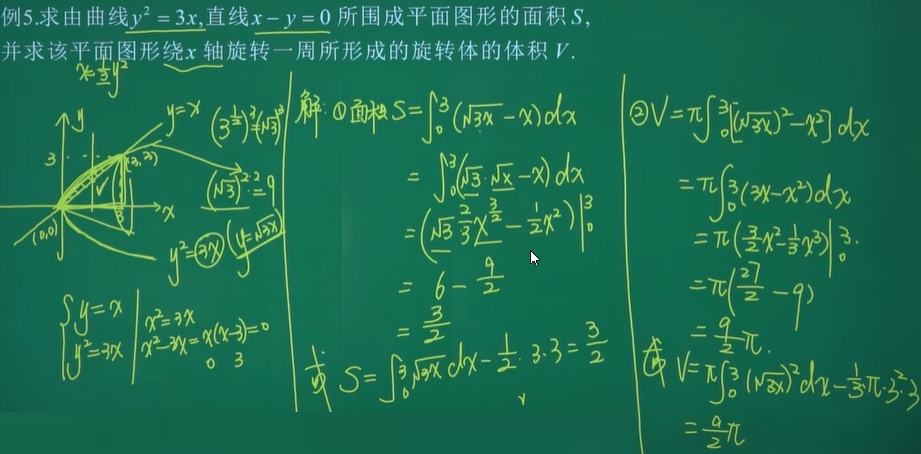 例5.求由曲线y² = 3x,直线x − y = 0 所围成平面图形的面积 S,
并求该平面图形绕x 轴旋转一周所形成的旋转体的体积 V.
x=⅓y²
y
y=x
3
(3,3)
(0,0)
3
x
y²=3x (y=√3x)
(√3)²·²=9
{y=x
y²=3x
x²=3x
x²−3x=x(x−3)=0
0 3
解: ①面积 S=∫₀³(√3x−x)dx
=∫₀³(√3·√x−x)dx
=(√3 2/3 x^(3/2) − 1/2 x²)|₀³
= 6 − 9/2
= 3/2
S=∫₀³√3x dx − 1/2·3·3 = 3/2
②V=π∫₀³[(√3x)²−x²]dx
=π∫₀³(3x−x²)dx
=π(3/2 x²−1/3 x³)|₀³.
=π(27/2 −9)
= 9/2 π.
V=π∫₀³(√3x)²dx−1/3·π·3²·3
= 9/2 π